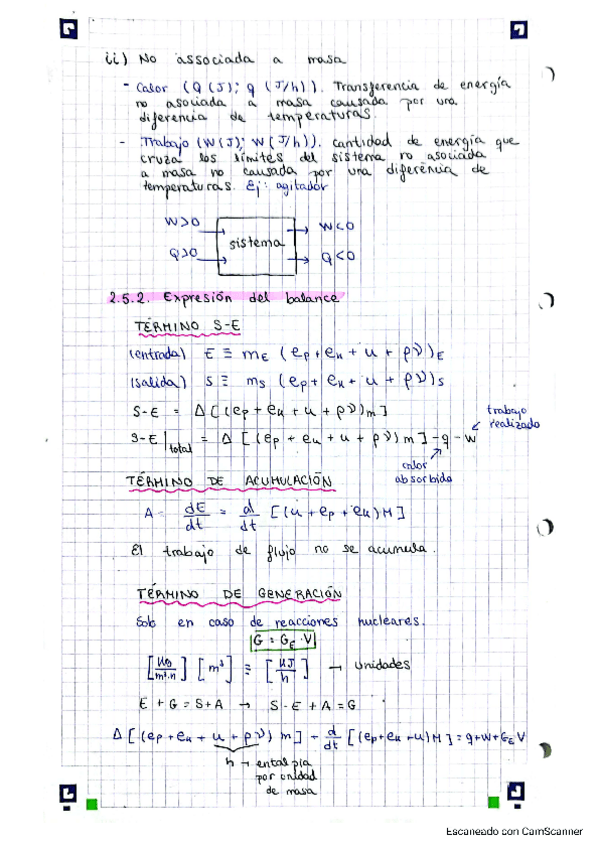 ii) No associada a masa
- Calor (Q (J); q (J/h)). Transferencia de energía
no asociada a masa causada por una
diferencia de temperaturas.
- Trabajo (W(J); W(J/h)). Cantidad de energía que
cruza los límites del sistema no asociada
a masa no causada por una diferencia de
temperaturas. Ej: agitador
W>0 W<0
sistema
Q>0 Q<0
2.5.2. Expresión del balance
TÉRMINO S-E
(entrada) E ≡ mE (ep + ek + u + pν)E
(salida) S ≡ mS (ep + ek + u + pν)S
S-E = Δ[(ep + ek + u + pν)m]
trabajo
realizado
S-E|total = Δ [(ep + ek + u + pν)m] - q - W
calor
absorbido
TÉRMINO DE ACUMULACIÓN
A = dE/dt = d/dt [(u + ep + ek)M]
El trabajo de flujo no se acumula.
TÉRMINO DE GENERACIÓN
Solo en caso de reacciones nucleares.
G = GE · V
[KJ/m³·h] [m³] ≡ [KJ/h] → unidades
E + G = S + A → S - E + A = G
Δ[(ep + ek + u + pν) m] + d/dt [(ep + ek + u)M] = q + W + GE V
h → entalpía
por unidad
de masa
Escaneado con CamScanner